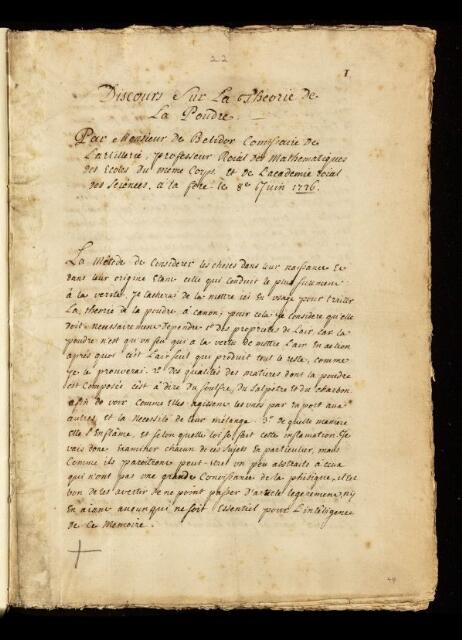 22
1.
Discours Sur La Theorie de
La Poudre.
Par Monsieur de Belidor Comissaire de
L'artillerie, professeur Roial des Mathematiques
des Ecoles du même Corps, et de L'academie roial
des Sciences, a la fere le 8e Juin
La Métode de Considerer les choses dans leur naissance Et
dans leur origine Etant celle qui conduit le plus surement
à la verité, je tacherai de la mettre ici en usage pour traiter
La theorie de la poudre, à canon; pour cela je considere qu'elle
doit necessairement dependre 1° des proprietes de L'air, car la
poudre n'est qu'un feu qui a la vertu de mettre L'air En action
après quoi c'est L'air seul que produit tout le reste, comme
je le prouverai. 2° des qualités des matieres dont la poudre
est Composée c'est à dire du soulfre, du salpètre et du charbon
afin de voir comme Elles agissent les unes par raport aux
autres et la Necessité de leur mélange 3° de quelle maniere
Elle s'Enflâme, et selon quelle loi se fait cette inflamation. Je
vais donc Examiner chacun de ces sujets En particulier, mais
Comme ils paroitront peut-etre un peu abstraits à ceux
qui n'ont pas une grande Conoissance de la phisique, il est
bon de les avertir de ne point passer D'article legerement, n'y
En aiant aucun qui ne soit Essentiel pour L'inteligence
de ce Memoire.